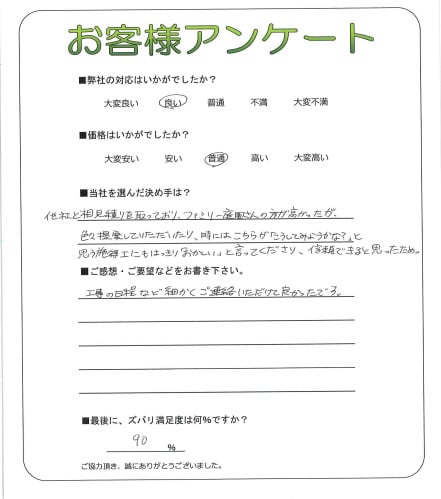 お客様アンケート
■弊社の対応はいかがでしたか?
大変良い 良い 普通 不満 大変不満
■価格はいかがでしたか?
大変安い 安い 普通 高い 大変高い
■当社を選んだ決め手は?
他社と相見積りを取っており、ファミリー庭園さんの方が高かったが、
色々提案していただいたり、時には、こちらが「こうしてみようかな?」と
思う施工にもはっきり「おかしい」と言ってくださり、信頼できると思ったため。
■ご感想・ご要望などをお書き下さい。
工事の日程など細かくご連絡いただけて良かったです。
■最後に、ズバリ満足度は何%ですか?
90 %
ご協力頂き、誠にありがとうございました。